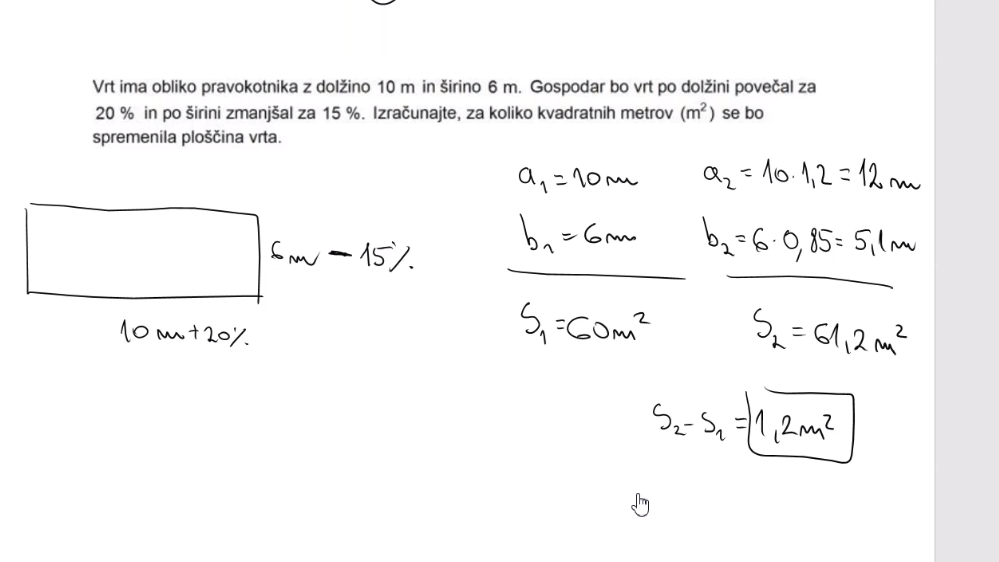 Vrt ima obliko pravokotnika z dolžino 10 m in širino 6 m. Gospodar bo vrt po dolžini povečal za
20 % in po širini zmanjšal za 15 %. Izračunajte, za koliko kvadratnih metrov (m²) se bo
spremenila ploščina vrta.
a₁ = 10 m
a₂ = 10 · 1,2 = 12 m
b₁ = 6 m
b₂ = 6 · 0,85 = 5,1 m
6 m - 15 %
10 m + 20 %
S₁ = 60 m²
S₂ = 61,2 m²
S₂ - S₁ = 1,2 m²